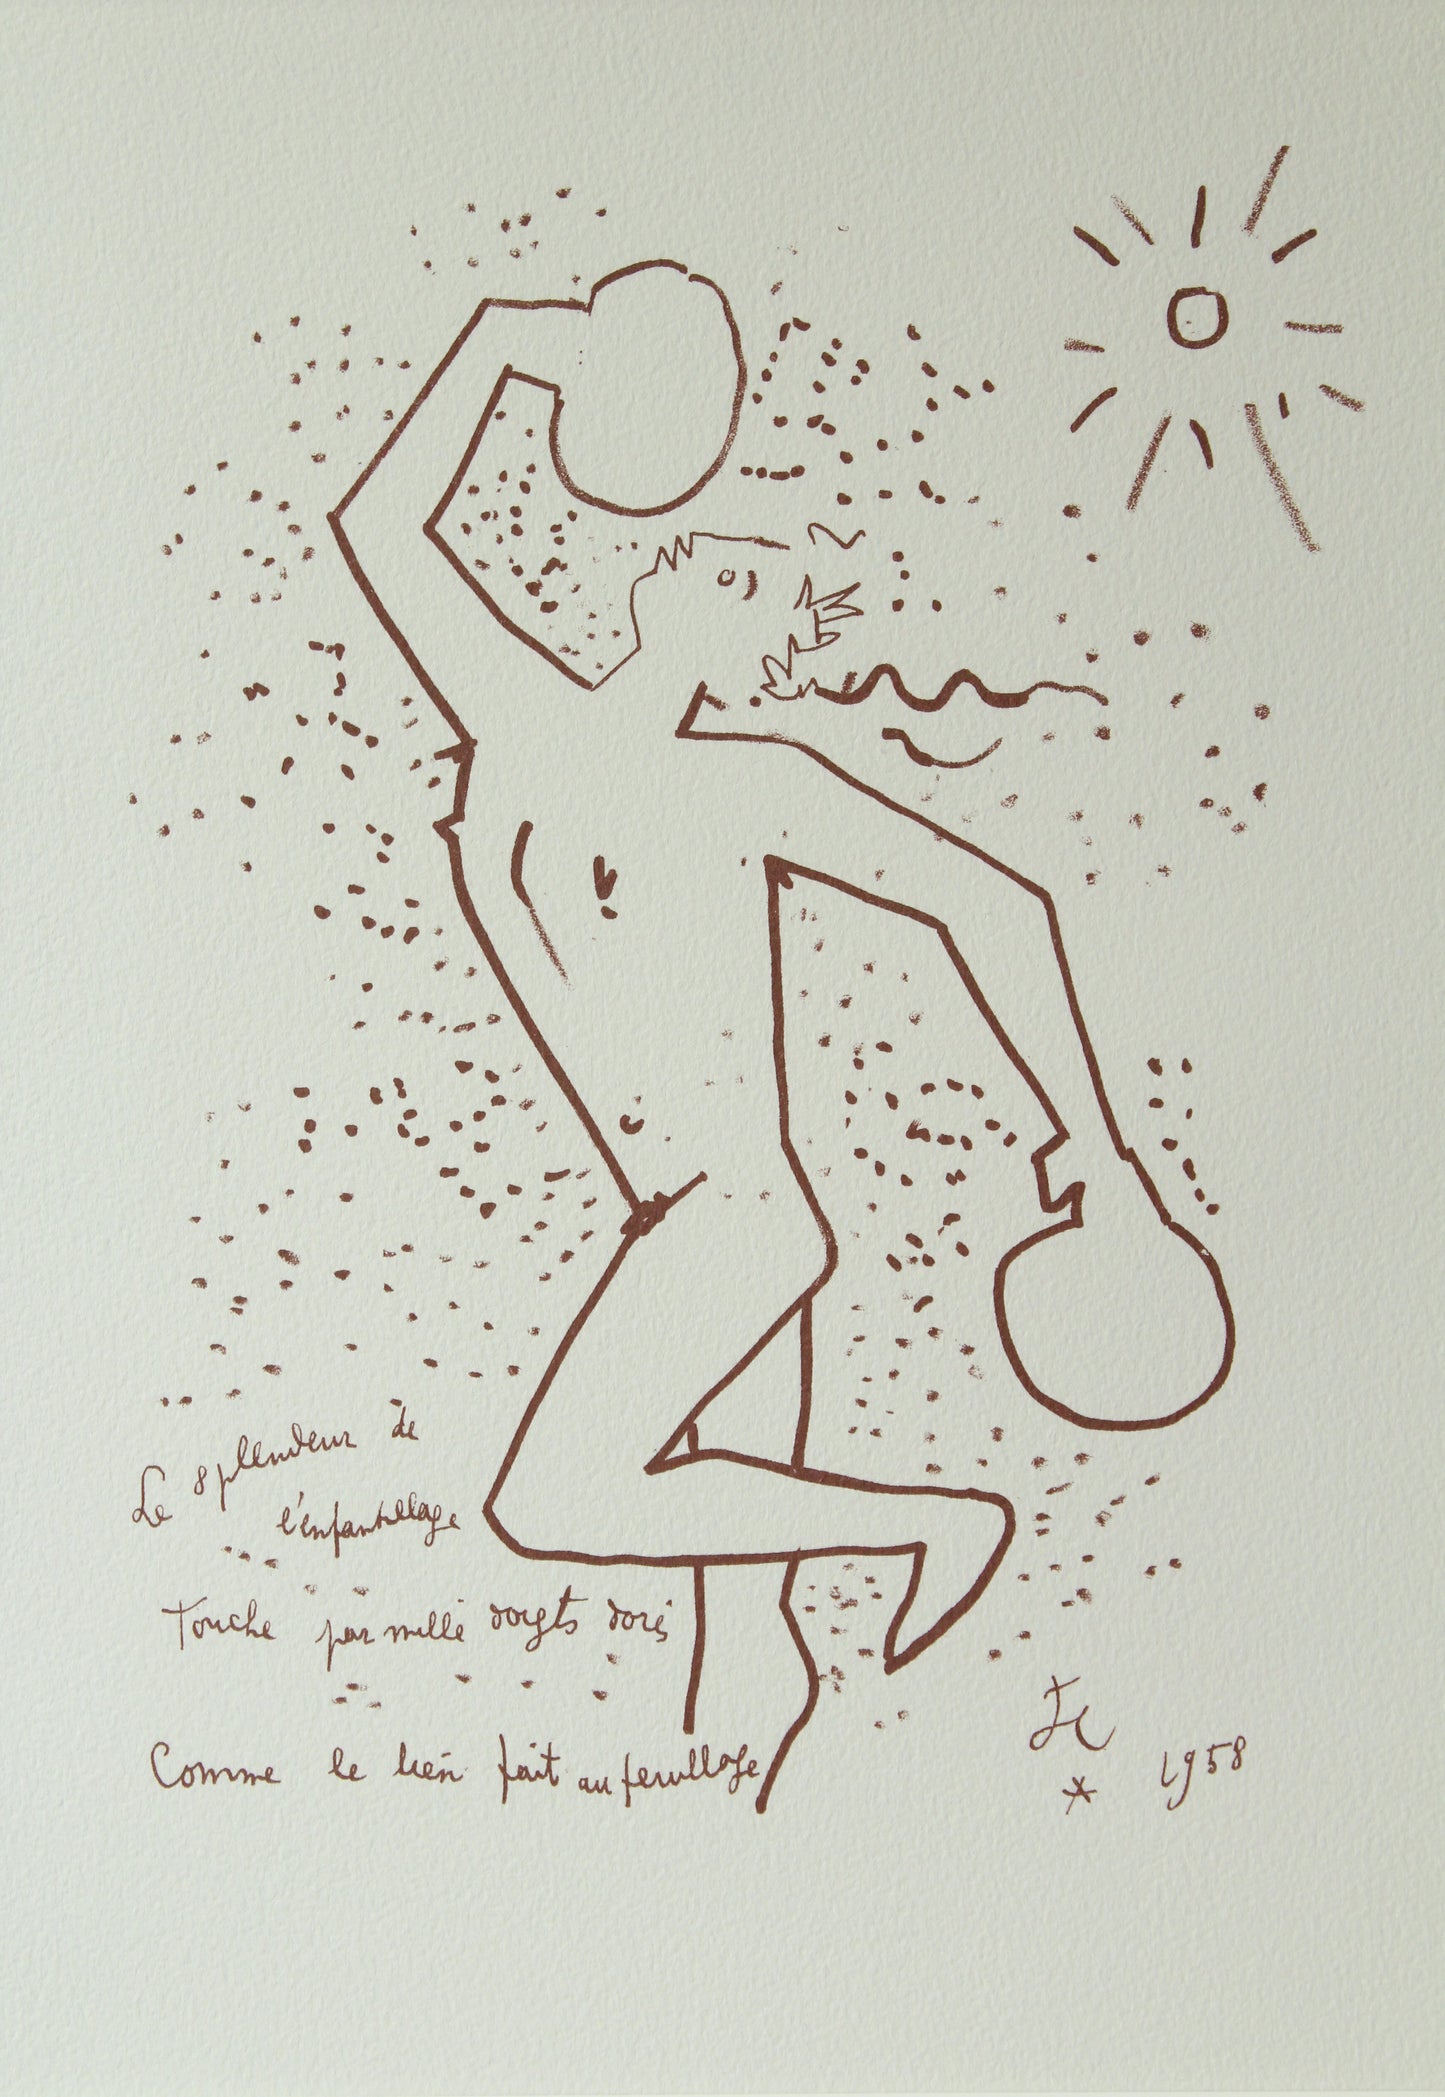 Le splendeur de
l'enfantillage
Touche par mille doigts dorés
Comme le lien fait au feuillage
JC
1958